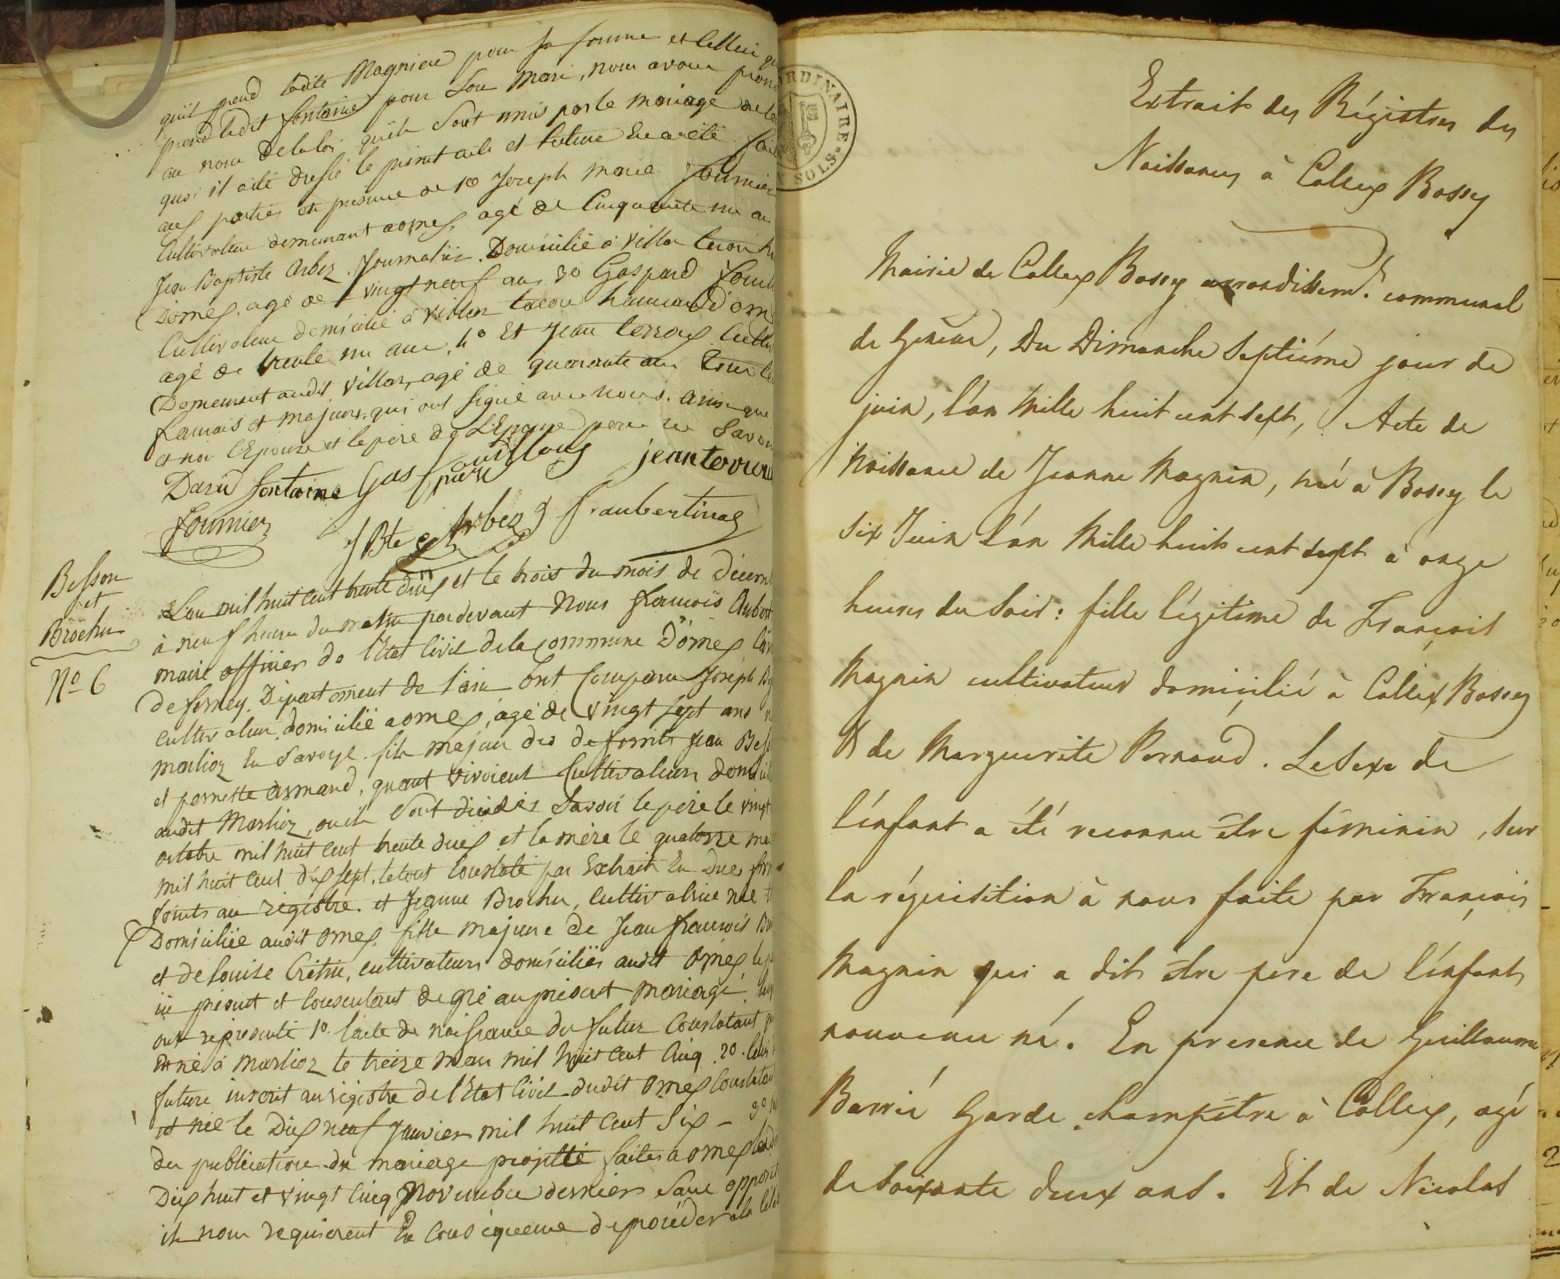 qu'il prend ladite Magnien pour sa femme et celle ci qu
prend ledit fontaine pour son mari, nous avons pron
au nom de la loi qu'ils sont unis par le mariage de
quoi il a été dressé le présent acte et lecture en a été fai
aux parties en présence de 1º Joseph Marie fournier
Cultivateur demeurant a ornex, agé de Cinquante un a
Jean Baptiste Arbez Journalier Domicilié à Villar tacon h
Dornex, agé de vingt neuf ans 3º Gaspard fouill
Cultivateur domicilié à Villar tacon hameau D'orn
agé de trente un ans, 4º Et Jean terroux Culti
Demeurant audit Villar, agé de quarante ans tous
francais et majeurs, qui ont signé avec nous. ainsi que
et non l'Epouse et le père de l'Epoux pour ne savoir
Dazu fontaine Gaspard fouilloux jean terroux
fournier père
JBte Arbez f. aubertinaz
Besson
et
Brochu
Nº 6
L'an mil huit cent trente dix et le trois du mois de Décem
à neuf heures du matin pardevant Nous francois Aubert
maire officier de l'Etat Civil de la commune D'ornex,
de ferney, Département de l'ain ont Comparu Joseph
cultivateur, domicilié a ornex, agé de vingt sept ans n
marlioz En Savoye fils majeur des defunts jean Bess
et pernette armand, quant vivoient Cultivateurs domicil
audit Marlioz, ou ils sont décédés Savoir le père le vingt
octobre mil huit cent trente dix et la mère le quatorze ma
mil huit cent dix sept, le tout Constaté par Extrait En Due for
joints au registre. et Jeanne Brochu, Cultivatrice née
Domiciliée audit ornex, fille majeure de Jean francois
et de louise Crétin, cultivateurs domiciliés audit ornex le
ici présent et Consentant de gré au présent mariage,
ont représenté 1º l'acte de naissance du futur Constatant
né à marlioz le treize mars mil huit cent Cinq 2º Celui
future inscrit au régistre de l'Etat Civil dudit ornex Constatan
née le Dix neuf Janvier mil huit Cent Six – 3º
des publications du mariage projetté faites a ornex
Dix huit et vingt Cinq Novembre derniers Sans opposit
ils nous requierent En Conséquence de procéder a la
ORDINAIRE
SOLS
Extrait des Régistres des
Naissances à Collex Bossy
Mairie de Collex Bossy arrondissemt. communal
de Genève, Du Dimanche Septiéme jour de
juin, l'an Mille huit cent sept, Acte de
Naissance de Jeanne Magnin, née à Bossy le
six Juin l'an Mille huit cent sept à onze
heures du Soir : fille légitime de François
Magnin cultivateur domicilié à Collex Bossy
& de Marguerite Pernoud. Le Sexe de
l'énfant a été reconnu être féminin, sur
la réquisition à nous faite par François
Magnin qui a dit être pere de l'énfant
nouveau né. En presence de Guillaume
Barrié Garde champêtre à Collex, agé
de soixante deux ans. Et de Nicolas